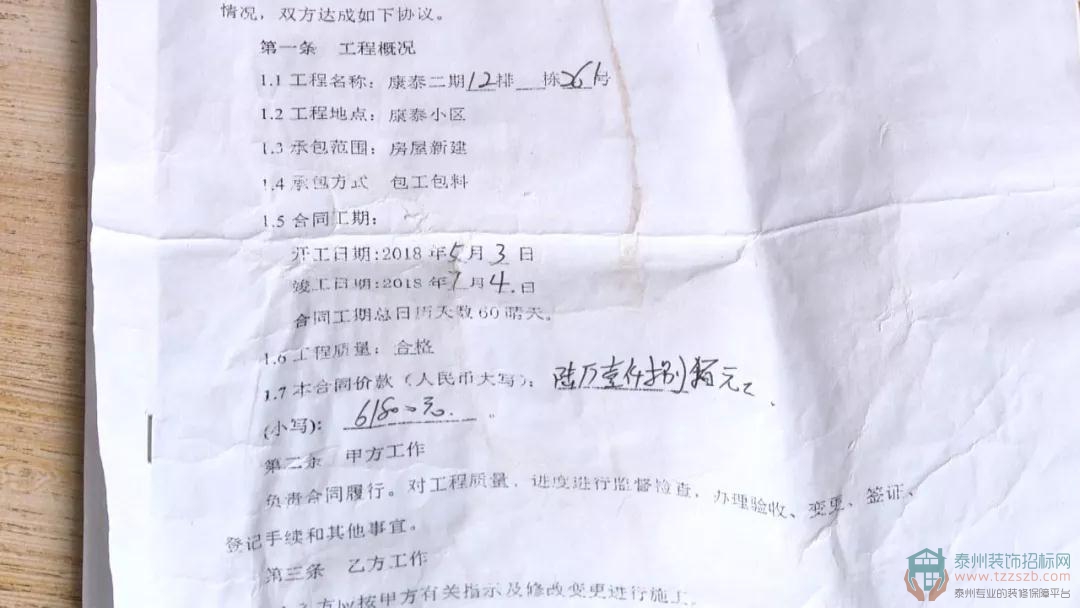 情况，双方达成如下协议。
第一条 工程概况
1.1 工程名称：康泰二期12排__栋261号
1.2 工程地点：康泰小区
1.3 承包范围：房屋新建
1.4 承包方式 包工包料
1.5 合同工期：
开工日期:2018年5月3日
竣工日期:2018年7月4日
合同工期总日历天数60晴天。
1.6 工程质量：合格
1.7 本合同价款（人民币大写）：陆万壹仟捌佰元
(小写)：61800元。
第二条 甲方工作
负责合同履行。对工程质量，进度进行监督检查，办理验收、变更、签证、
登记手续和其他事宜。
第三条 乙方工作
方应按甲方有关指示及修改变更进行施工，
泰州装饰招标网
www.tzzszb.com
泰州专业的装修保障平台